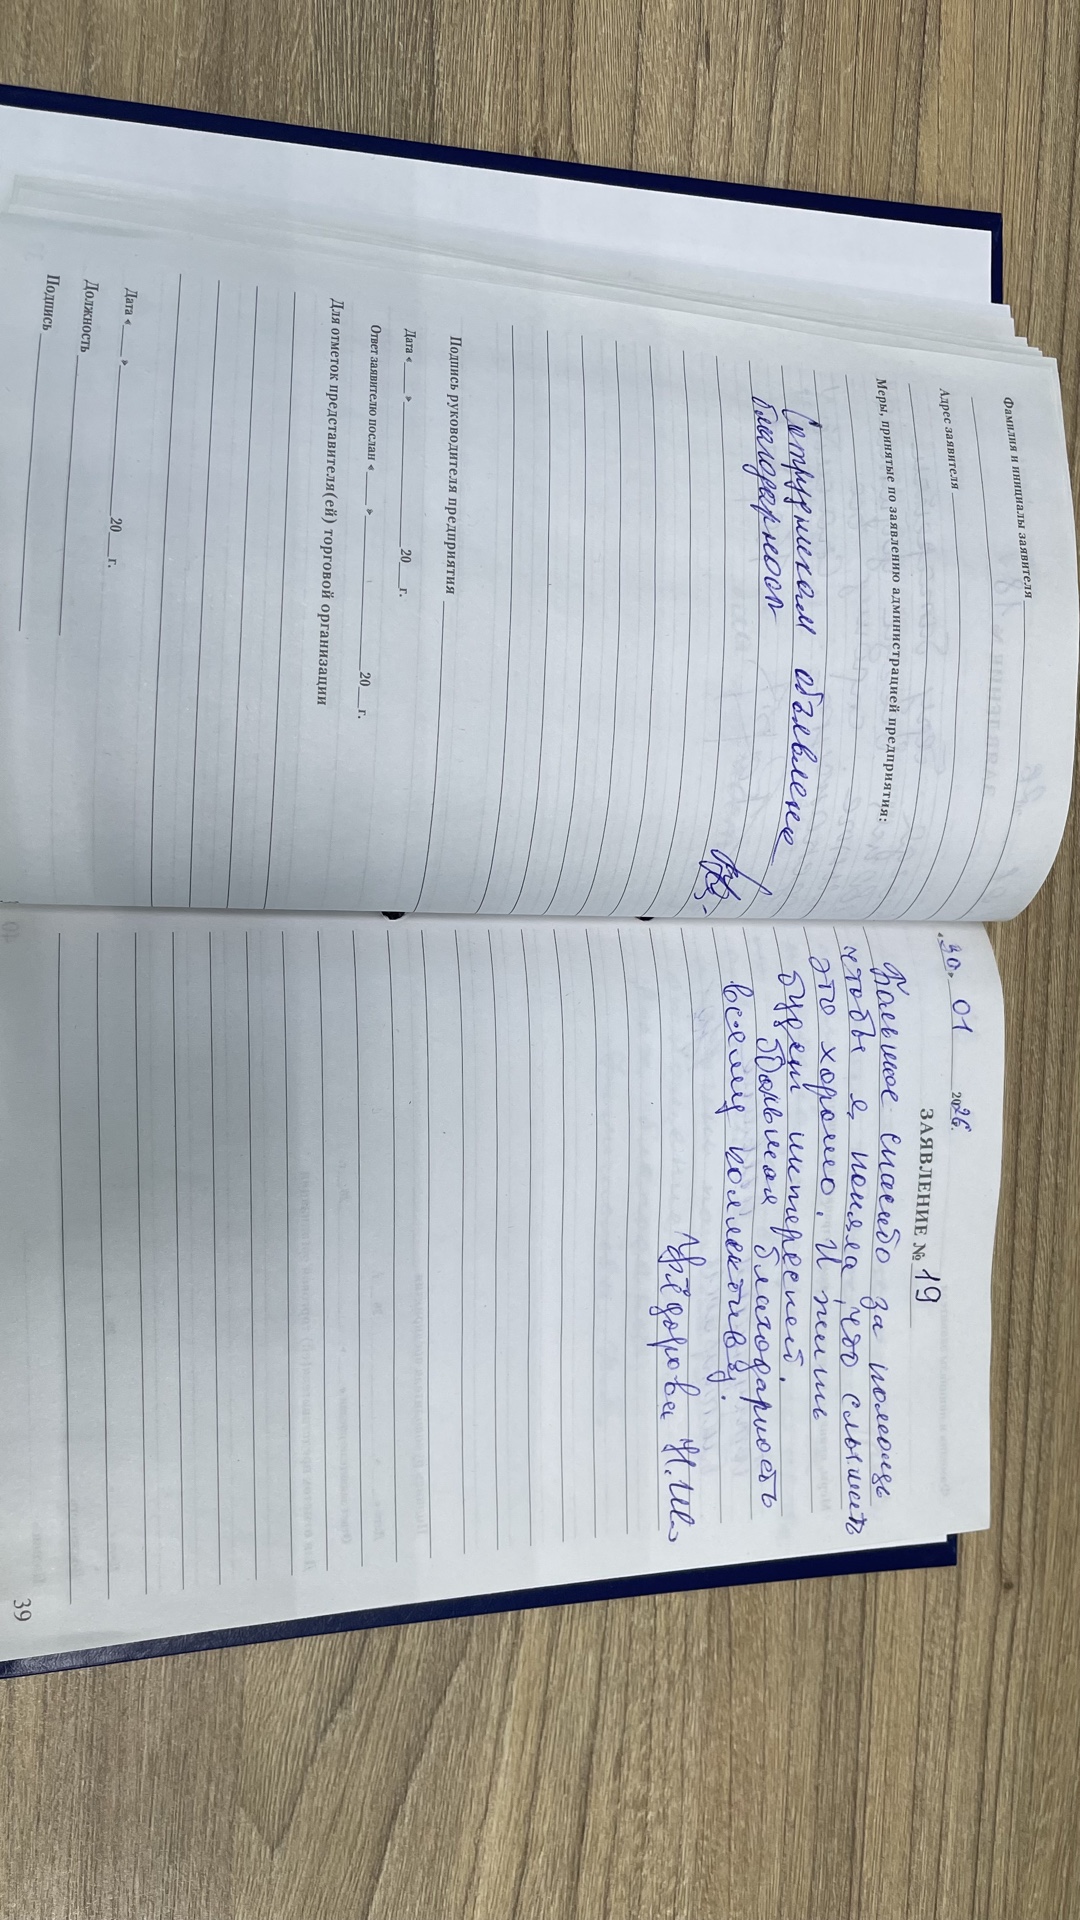 Фамилия и инициалы заявителя
Адрес заявителя
Меры, принятые по заявлению администрацией предприятия:
Сотрудникам объявлена
благодарность
Подпись руководителя предприятия
Дата « » 20 г.
Ответ заявителю послан « » 20 г.
Для отметок представителя(ей) торговой организации
Дата « » 20 г.
Должность
Подпись
«30» 01 2026.
ЗАЯВЛЕНИЕ № 19
Большое спасибо за помощь
чтобы я поняла, что слышать
это хорошо. И жить
будет интересней.
Большая благодарность
всему коллективу.
Фёдорова
39